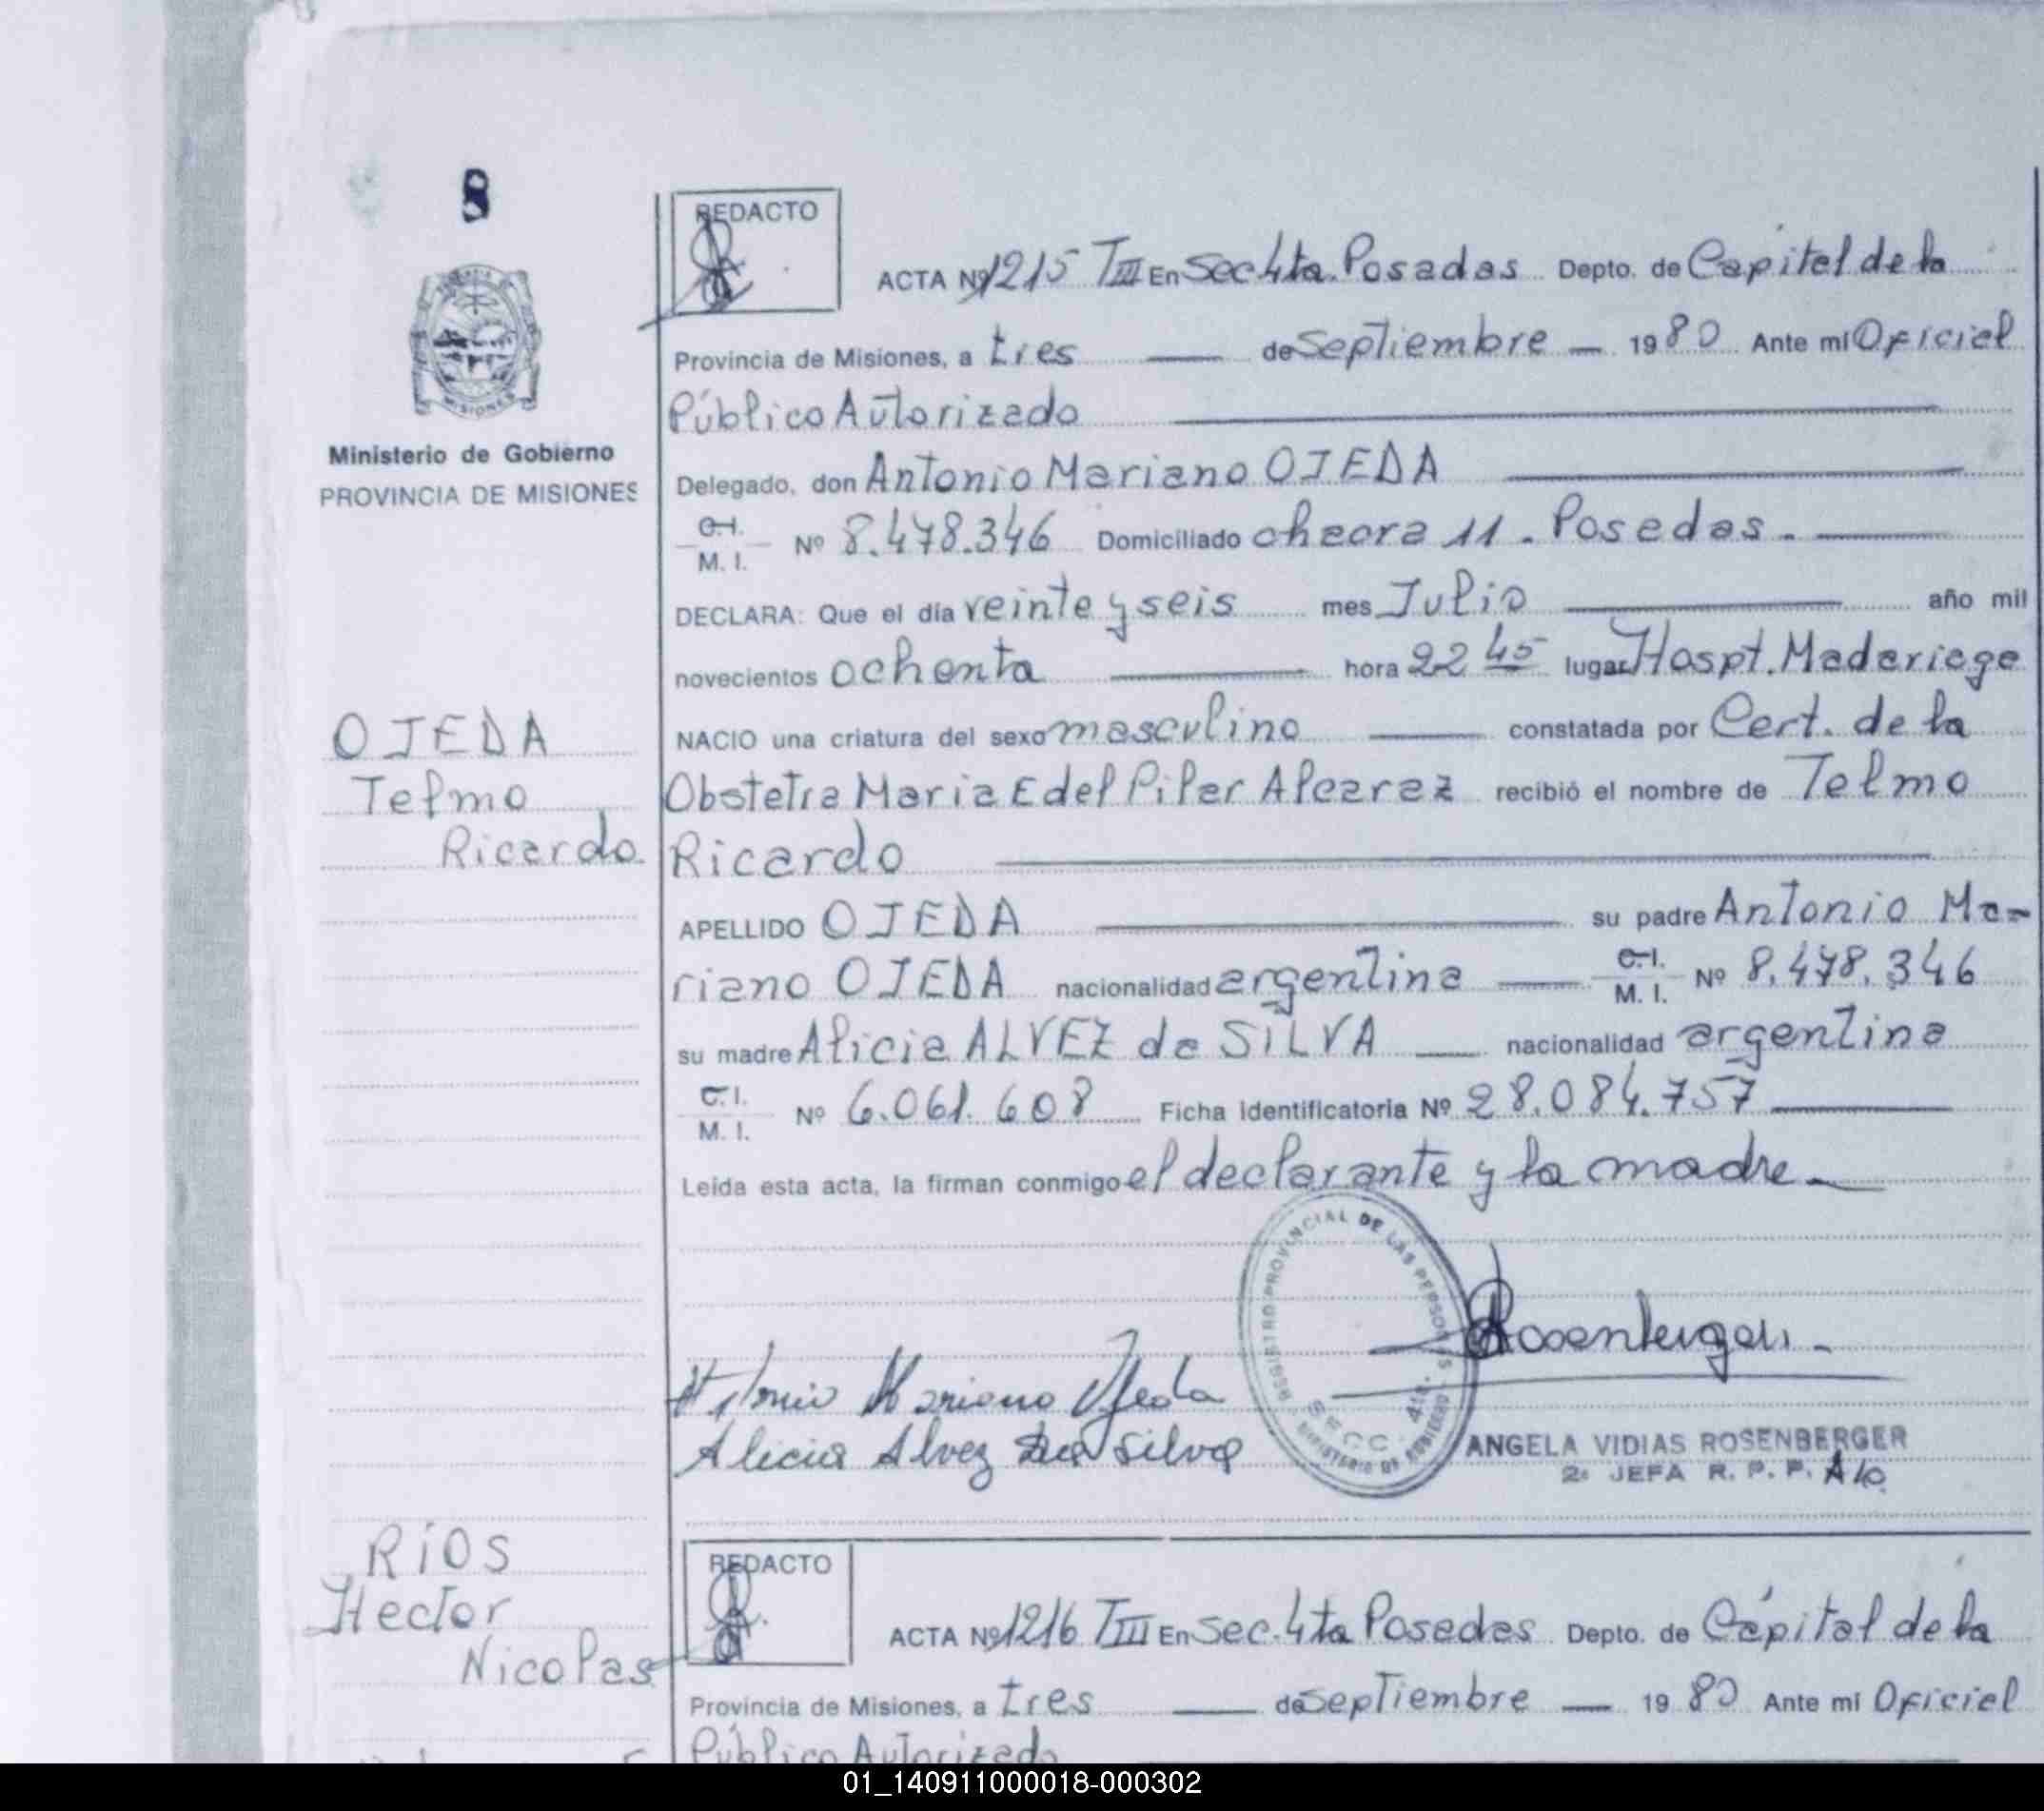 8
MISIONES
Ministerio de Gobierno
PROVINCIA DE MISIONES
REDACTO
ACTA Nº 1215 TIII En Sec 4ta. Posadas Depto. de Capital de la
Provincia de Misiones, a tres de Septiembre 1980 Ante mí Oficial
Público Autorizado
Delegado, don Antonio Mariano OJEDA
C.I.
M. I. Nº 8.478.346 Domiciliado chacra 11. Posadas.
DECLARA: Que el día veinte y seis mes Julio año mil
novecientos ochenta hora 22 45 lugar Hospt. Madariaga
NACIO una criatura del sexo masculino constatada por Cert. de la
Obstetra Maria E del Pilar Alcaraz recibió el nombre de Telmo
Ricardo
APELLIDO OJEDA su padre Antonio Ma-
riano OJEDA nacionalidad argentina C.I. M. I. Nº 8.478.346
su madre Alicia ALVEZ da SILVA nacionalidad argentina
C.I.
M. I. Nº 6.061.608 Ficha Identificatoria Nº 28.084.757
Leída esta acta, la firman conmigo el declarante y la madre
OJEDA
Telmo
Ricardo.
REGISTRO PROVINCIAL DE LAS PERSONAS
SECC. 4ta.
MINISTERIO DE GOBIERNO
Rosenberger
Antonio Mariano Ojeda
Alicia Alvez Da Silva
ANGELA VIDIAS ROSENBERGER
2º JEFA R. P. P.
RÍOS
Hector
Nicolas
REDACTO
ACTA Nº 1216 TIII En Sec. 4ta Posadas Depto. de Capital de la
Provincia de Misiones, a tres de Septiembre 1980 Ante mí Oficial
Público Autorizado
01_140911000018-000302